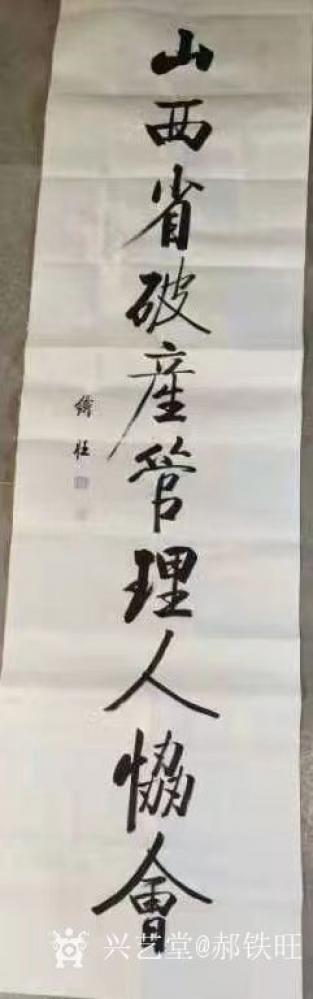 山西省破產管理人恊會
鐵旺
兴艺堂@郝铁旺